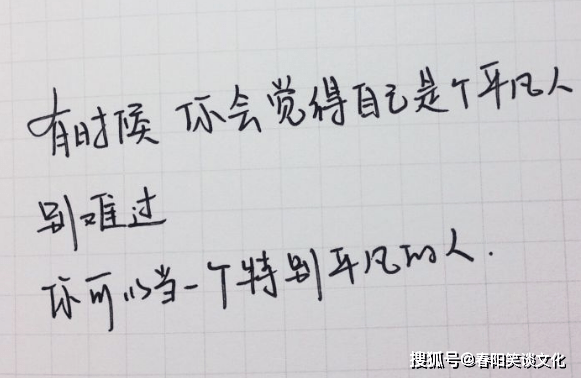 有时候 你会觉得自己是个平凡人
别难过
你可以当一个特别平凡的人.
搜狐号@春阳笑谈文化